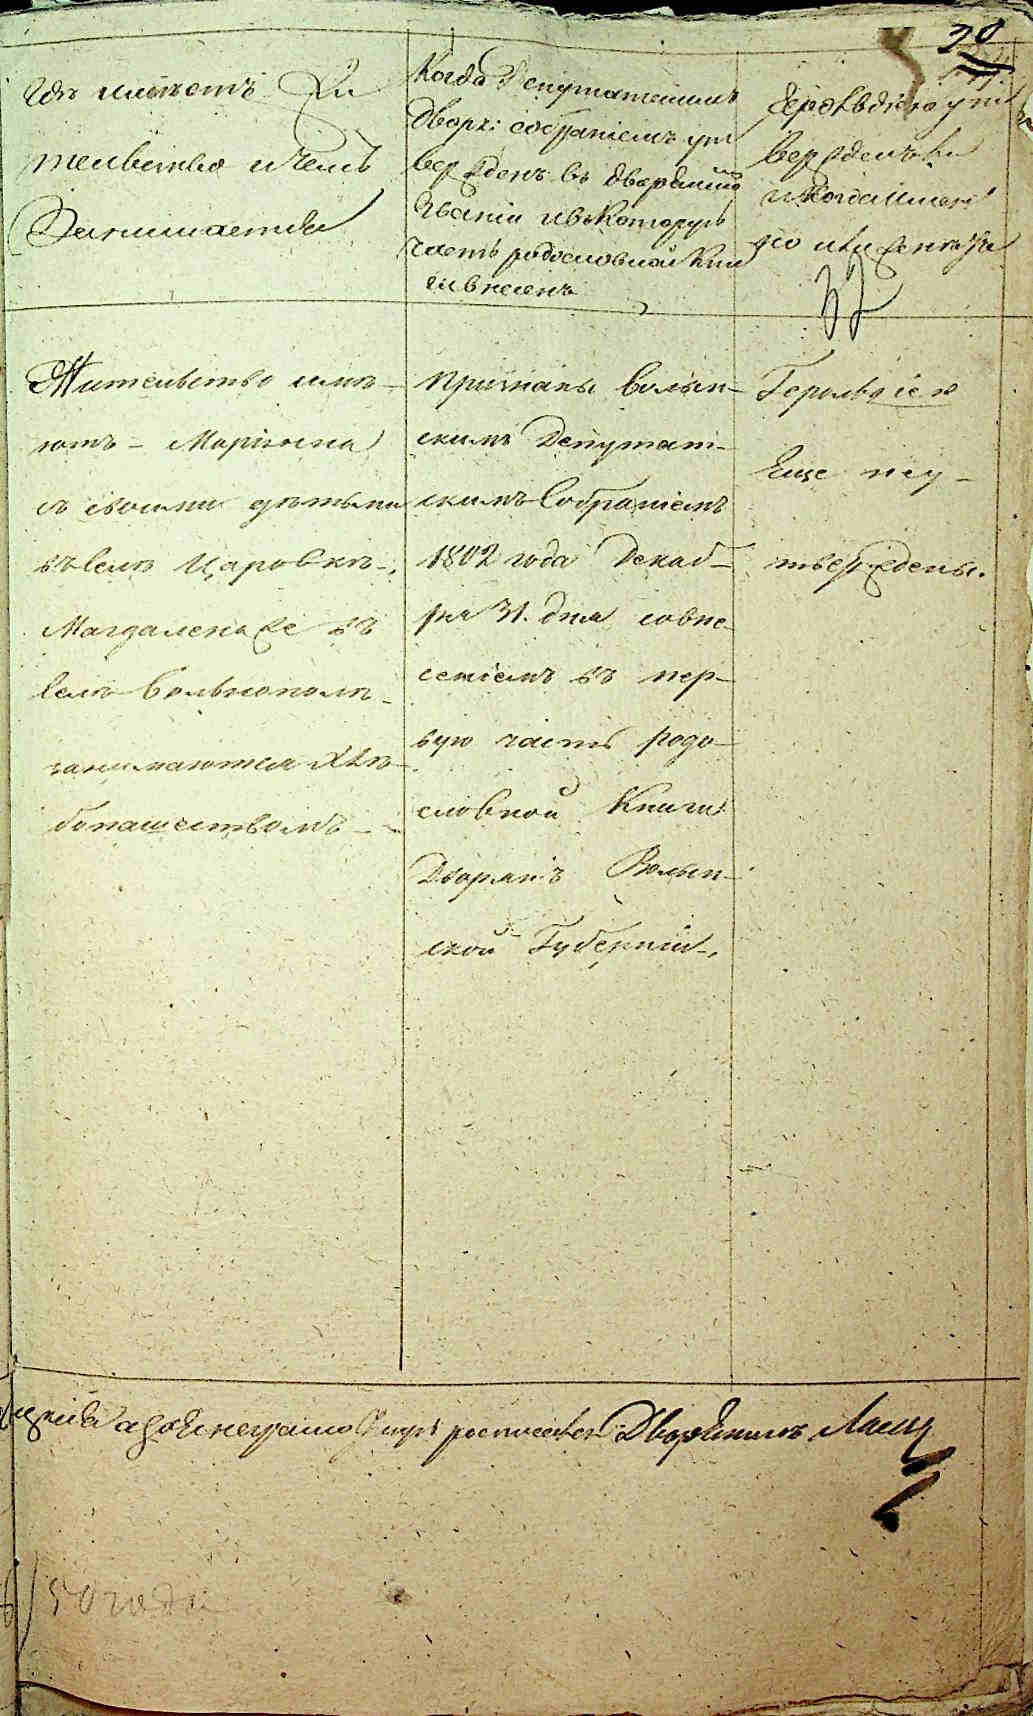 20
Гдѣ имѣетъ Жи
тельство и чемъ
Занимается
Когда Депутатскимъ
Двор: собраніемъ ут
вержденъ въ дворянско
званіи и въ Которую
часть родословной Кни
ги внесенъ
Герольдіею ут
вержденъ ли
и Когда имен
но или Указ
32
Жительство имѣ-
ютъ - Маріанна
съ своими дѣтьми
въ селѣ Царовкѣ,
Магдалена же въ
селѣ Вольнополѣ
занимаются хлѣ-
бопашествомъ
признаны Волын-
скимъ Депутат-
скимъ Собраніемъ
1802 года Декаб-
ря 31. дня со вне-
сеніемъ въ пер-
вую часть родо-
словной Книги
Дворянъ Волын-
ской Губерніи,
Герольдіею
Еще неу-
тверждены.
росписался Дворянинъ
50 года